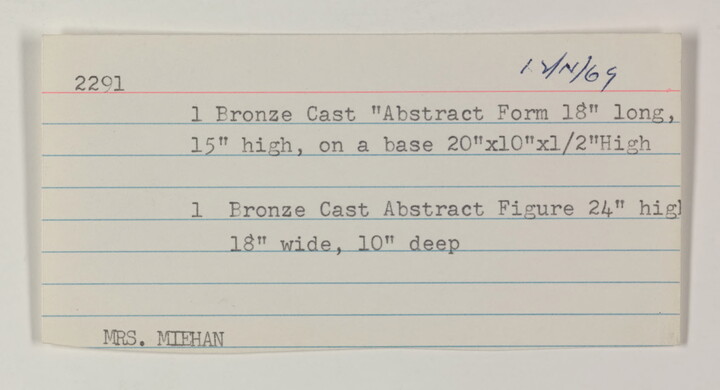 2291
12/N/69
1 Bronze Cast "Abstract Form 18" long,
15" high, on a base 20"x10"x1/2"High
1 Bronze Cast Abstract Figure 24" high
18" wide, 10" deep
MRS. MIEHAN